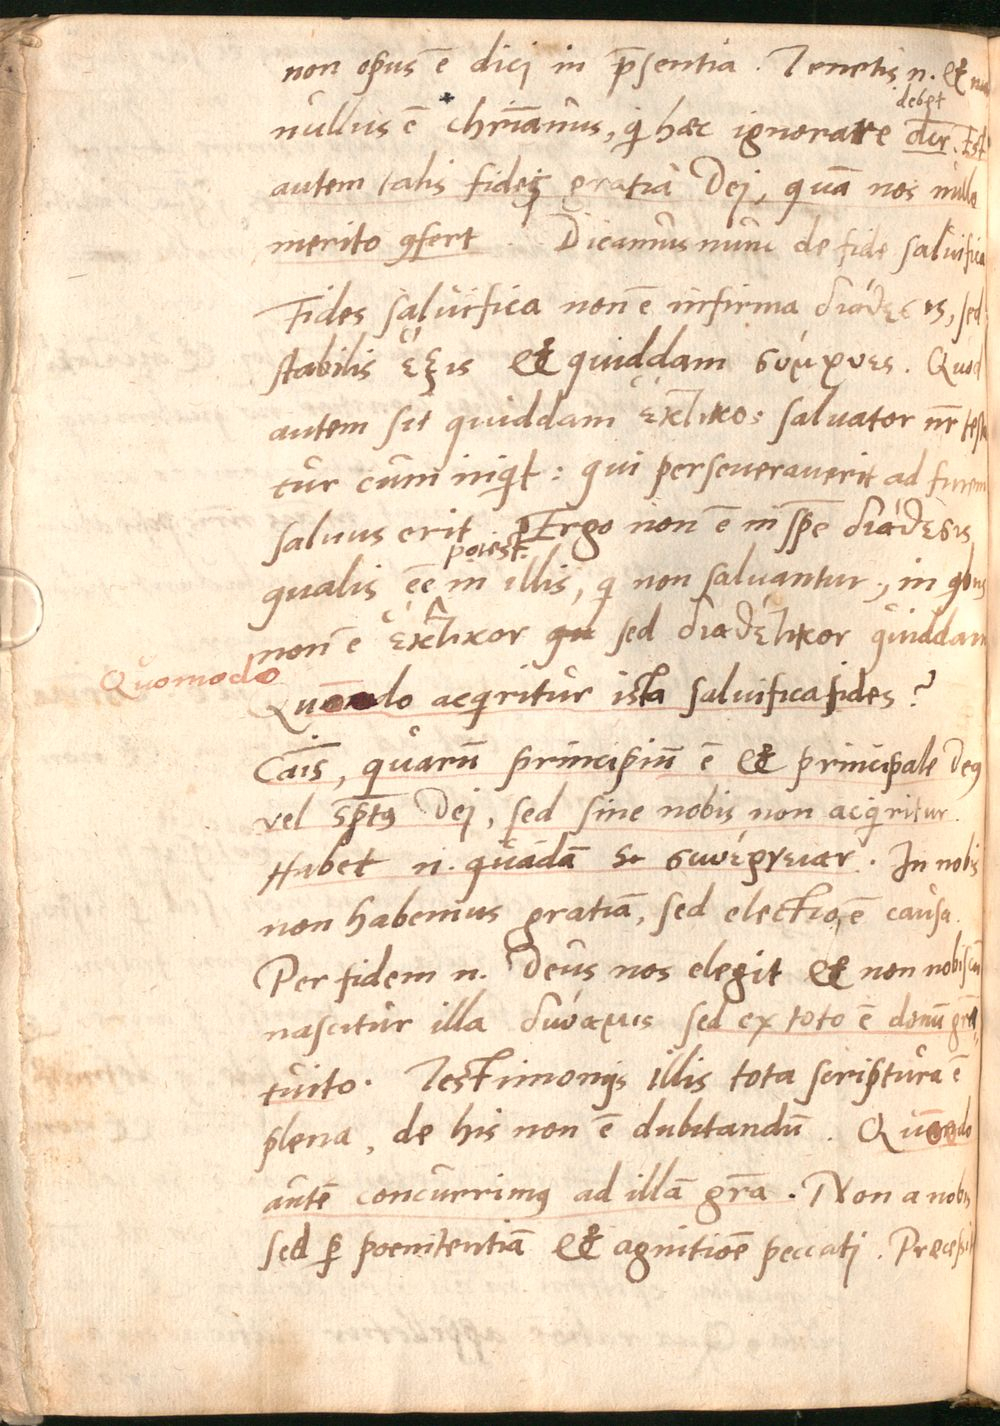 non opus ē dici in p̄sentia. Tenetis n. &
debet
nullus ē chr̄ianus, q̇ haec ignorare dur̄. Est
autem talis fidei gratia Dej, quā nos nulla
merito ꝯfert. Dicamus nunc de fide saluifica
Fides saluifica non ē infirma διάθεσις, sed
stabilis ἕξις & quiddam σύμφυες. Quod
autem sit quiddam ἑκτικος saluator nr̄ testa
tur cum inqt: qui perseuerauerit ad finem
saluus erit. Ergo non ē in spē διάθεσις
potest.
qualis ēē in illis, q̇ non saluantur, in qbus
non ē ἑκτικον sed διαθετικον quiddam
Quomodo
Quōdo acq̇ritur ista saluifica fides?
Cāis, quarū principiū ē & principale Deꝰ
vel sp̄tꝰ Dej, sed sine nobis non acq̇ritur.
Habet n. quādā συνέργειαν. In nobis
non habemus gratiā, sed electio ē causa.
Per fidem n. Deus nos elegit & non nobiscū
nascitur illa δύναμις sed ex toto ē donū gra
tuito. Testimonijs illis tota scriptura ē
plena, de his non ē dubitandū. Quōdo
autē concurrimꝰ ad illā gr̄a. Non a nobis
sed ꝑ poenitentiā & agnitiōe peccatj. Praecepit